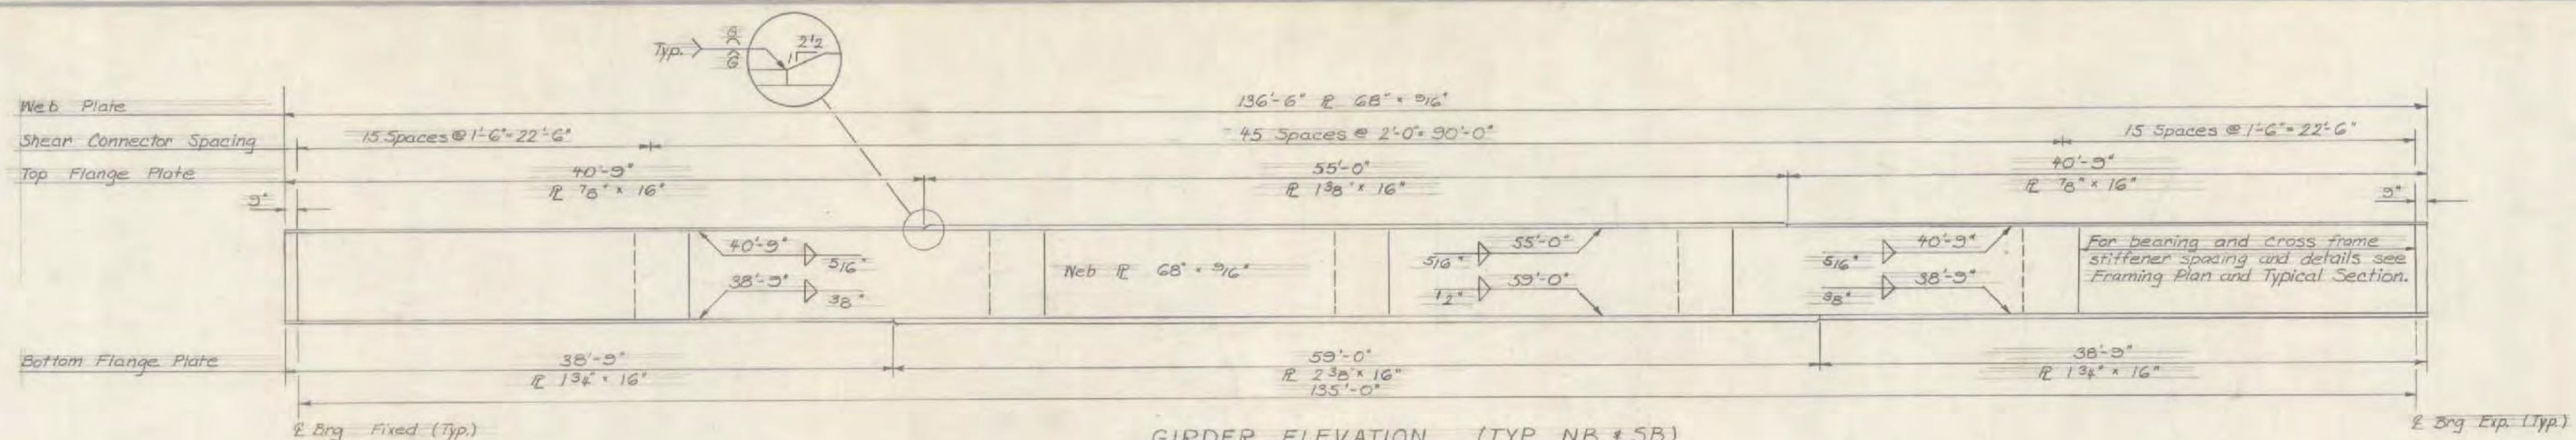 Typ. G G 1 2 1/2
Web Plate 136'-6" ℄ 68" x 9/16"
Shear Connector Spacing 15 Spaces @ 1'-6" = 22'-6" 45 Spaces @ 2'-0" = 90'-0" 15 Spaces @ 1'-6" = 22'-6"
Top Flange Plate 40'-9" 55'-0" 40'-9"
PL 7/8" x 16" PL 1 3/8" x 16" PL 7/8" x 16"
9" 9"
40'-9" 5/16"
38'-9" 3/8"
Web PL 68" x 9/16"
5/16" 55'-0"
1/2" 59'-0"
5/16" 40'-9"
3/8" 38'-9"
For bearing and cross frame
stiffener spacing and details see
Framing Plan and Typical Section.
Bottom Flange Plate 38'-9" 59'-0" 38'-9"
PL 1 3/4" x 16" PL 2 3/8" x 16" PL 1 3/4" x 16"
135'-0"
℄ Brg Fixed (Typ.) ℄ Brg Exp. (Typ.)
GIRDER ELEVATION (TYP. NB & SB)